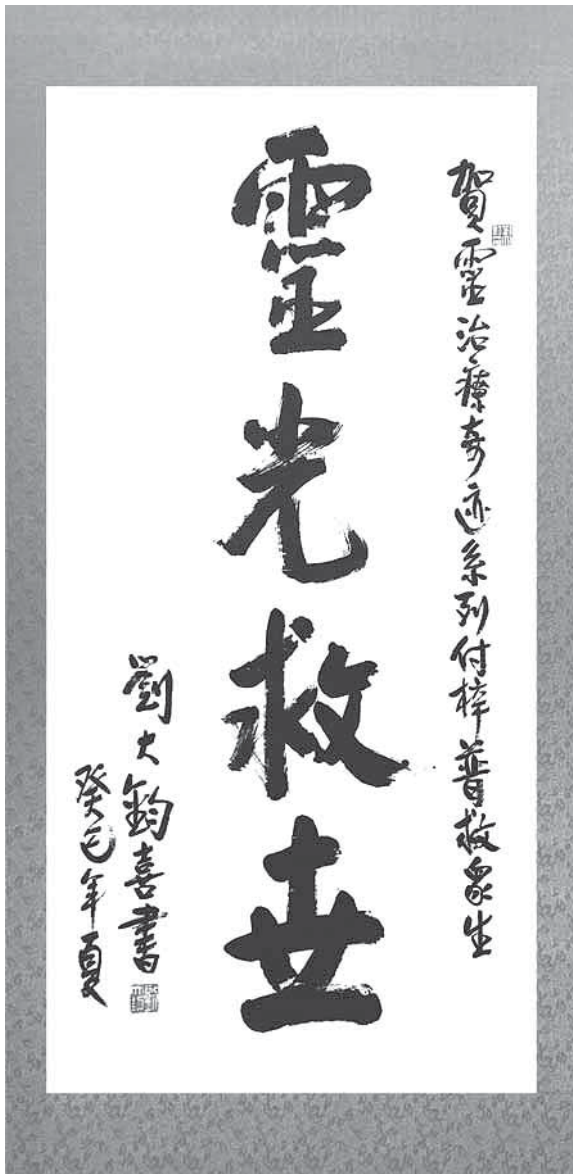 賀靈治療奇迹系列付梓普救眾生
靈光救世
劉大鈞喜書
癸巳年夏